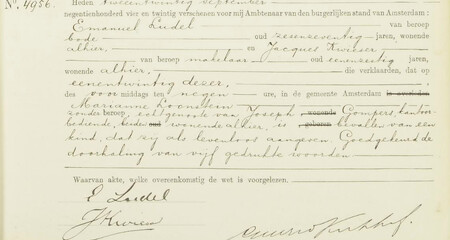 No. 4956. Heden tweeentwintig september
negentienhonderd vier en twintig verschenen voor mij Ambtenaar van den burgerlijken stand van Amsterdam:
Emanuel Ludel van beroep
bode oud zesenzeventig jaren, wonende
alhier, en Jacques Kwieser
van beroep makelaar oud eenenzestig jaren,
wonende alhier, die verklaarden, dat op
eenentwintig dezer,
des voor middags ten negen ure, in de gemeente Amsterdam is overleden
Marianne Loonstein
zonder beroep, echtgenoote van Joseph wonende Gompers, kantoor-
bediende, beiden oud wonende alhier, is geboren bevallen van een
kind, dat zij als levenloos aangeven. Goedgekeurd de
doorhaling van vijf gedrukte woorden
Waarvan akte, welke overeenkomstig de wet is voorgelezen.
E Ludel